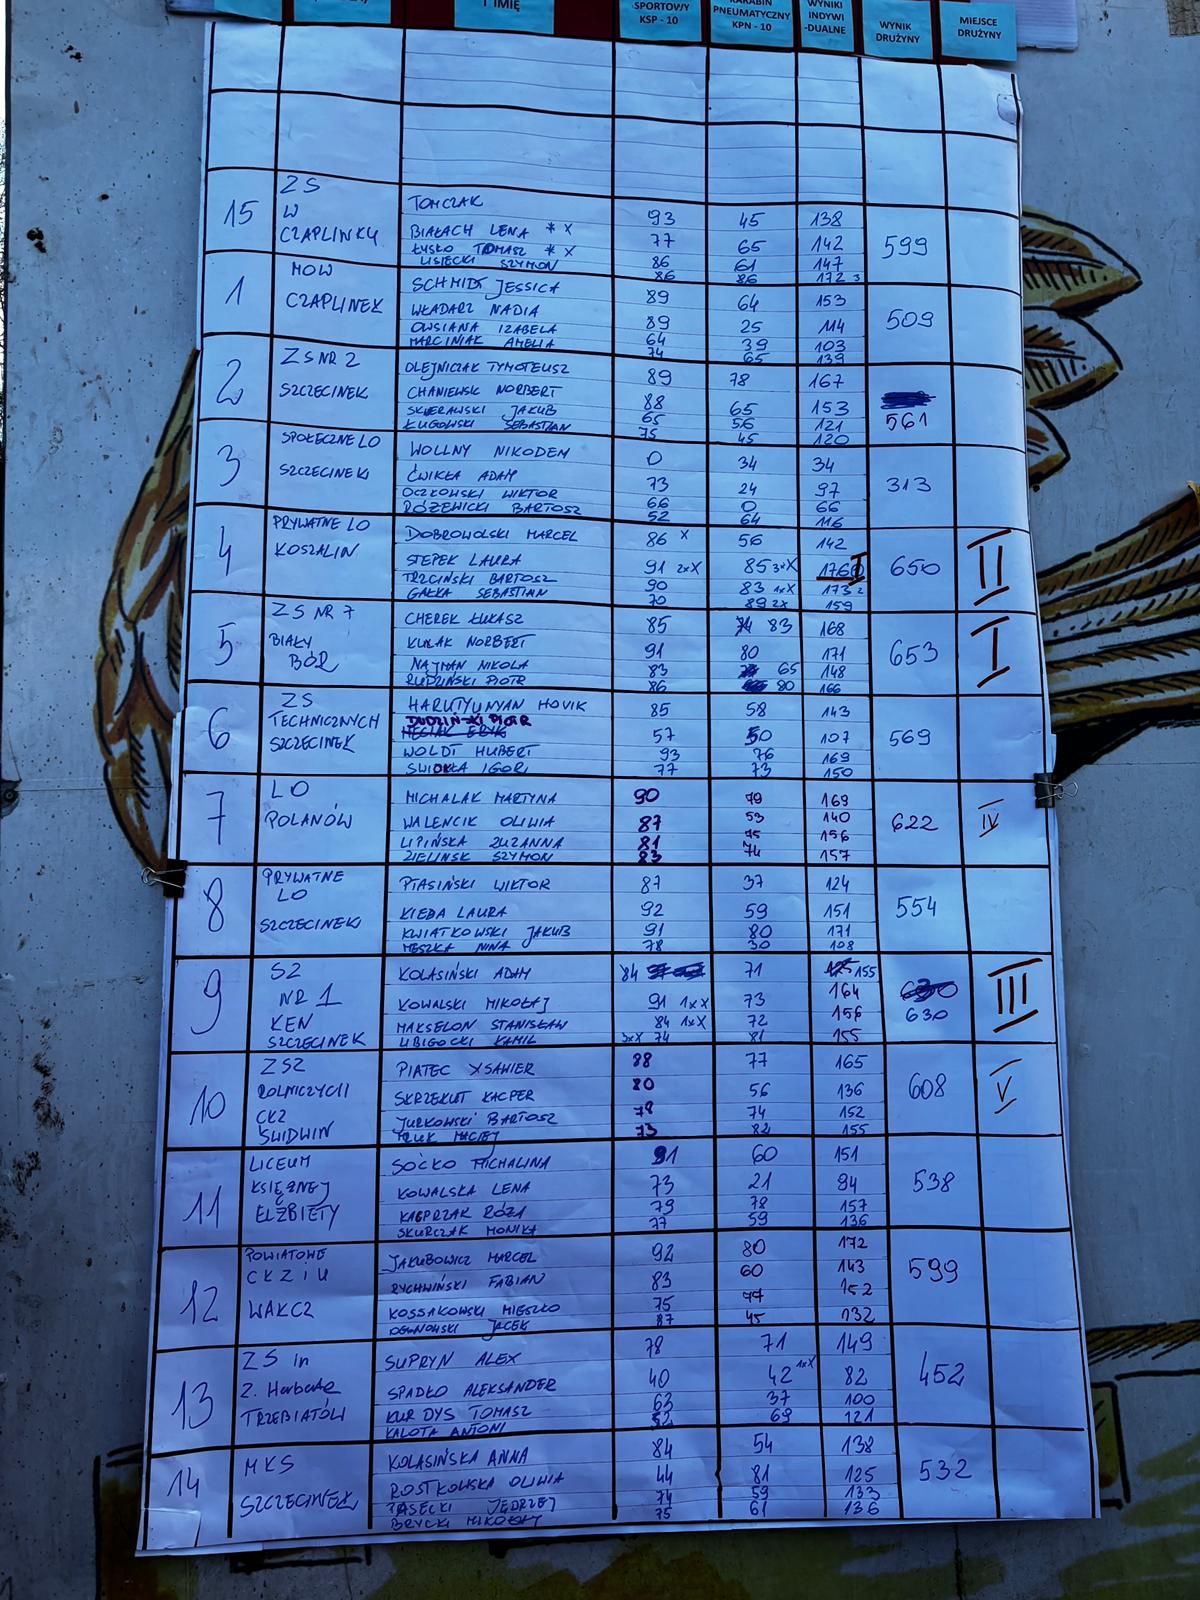 I IMIĘ
SPORTOWY
KSP - 10
KARABIN
PNEUMATYCZNY
KPN - 10
WYNIKI
INDYWI
-DUALNE
WYNIK
DRUŻYNY
MIEJSCE
DRUŻYNY
15 ZS W CZAPLINKU 599
TOMCZAK 93 45 138
BIAŁACH LENA * X 77 65 142
ŁYSKO TOMASZ * X 86 61 147
LISIECKI SZYMON 86 86 172 3
1 MOW CZAPLINEK 509
SCHMIDT JESSICA 89 64 153
WŁADARZ NADIA 89 25 114
OWSIANA IZABELA 64 39 103
MARCINIAK AMELIA 74 65 139
2 ZS NR 2 SZCZECINEK 561
OLEJNICZAK TYMOTEUSZ 89 78 167
CHANIEWSK NORBERT 88 65 153
SKWERAWSKI JAKUB 65 56 121
ŁUGOWSKI SEBASTIAN 75 45 120
3 SPOŁECZNE LO SZCZECINEK 313
WOLLNY NIKODEM 0 34 34
ĆWIKŁA ADAM 73 24 97
OCZKOWSKI WIKTOR 66 0 66
RÓŻEWICKI BARTOSZ 52 64 116
4 PRYWATNE LO KOSZALIN 650 II
DOBROWOLSKI MARCEL 86 X 56 142
STEPEK LAURA 91 2xX 85 3xX 176 I
TRZCIŃSKI BARTOSZ 90 83 1xX 173 2
GAŁKA SEBASTIAN 70 89 2X 159
5 ZS NR 7 BIAŁY BÓR 653 I
CHEREK ŁUKASZ 85 83 168
KULAK NORBERT 91 80 171
NAJMAN NIKOLA 83 65 148
RUDZIŃSKI PIOTR 86 80 166
6 ZS TECHNICZNYCH SZCZECINEK 569
HARUTYUNYAN HOVIK 85 58 143
DUDZIŃSKI PIOTR 57 50 107
WOLDT HUBERT 93 76 169
ŚWIOKŁA IGOR 77 73 150
7 LO POLANÓW 622 IV
MICHALAK MARTYNA 90 79 169
WALENCIK OLIWIA 87 53 140
LIPIŃSKA ZUZANNA 81 75 156
ZIELIŃSK SZYMON 83 74 157
8 PRYWATNE LO SZCZECINEK 554
PTASIŃSKI WIKTOR 87 37 124
KIEDA LAURA 92 59 151
KWIATKOWSKI JAKUB 91 80 171
MESZKA NINA 78 30 108
9 SZ NR 1 KEN SZCZECINEK 630 III
KOLASIŃSKI ADAM 84 71 155
KOWALSKI MIKOŁAJ 91 1xX 73 164
MAKSELON STANISŁAW 84 1xX 72 156
LIBIGOCKI KAMIL 3xX 74 81 155
10 ZSZ ROLNICZYCH CKZ ŚWIDWIN 608 V
PIATEC XSAWIER 88 77 165
SKRZEKUT KACPER 80 56 136
JURKOWSKI BARTOSZ 78 74 152
MACIEJ 73 82 155
11 LICEUM KSIĘŻNEJ ELŻBIETY 538
SOĆKO MICHALINA 91 60 151
KOWALSKA LENA 73 21 94
KACPRZAK RÓŻA 79 78 157
SKURCZAK MONIKA 77 59 136
12 POWIATOWE CKZiU WAŁCZ 599
JAKUBOWICZ MARCEL 92 80 172
RYCHWIŃSKI FABIAN 83 60 143
KOSSAKOWSKI MIESZKO 75 77 152
OGONOWSKI JACEK 87 45 132
13 ZS im Z. Herberta TRZEBIATÓW 452
SUPRYN ALEX 78 71 149
SPADŁO ALEKSANDER 40 42 1xX 82
KURDYS TOMASZ 63 37 100
KALOTA ANTONI 52 69 121
14 MKS SZCZECINEK 532
KOLASIŃSKA ANNA 84 54 138
ROSTKOWSKA OLIWIA 44 81 125
PIASECKI JĘDRZEJ 74 59 133
BRYCKI MIKOŁAJ 75 61 136